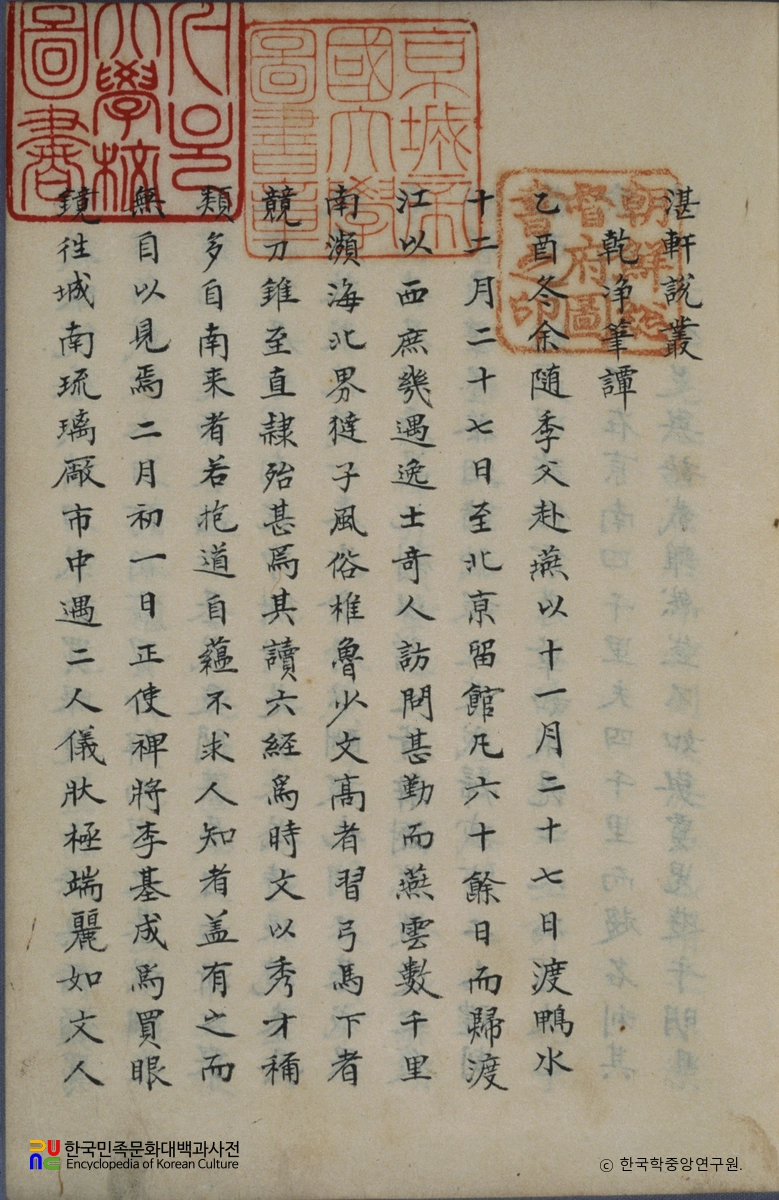 湛軒說叢
乾淨筆譚
乙酉冬余随季父赴燕以十一月二十七日渡鴨水
十二月二十七日至北京留館凡六十餘日而歸渡
江以西庶幾遇逸士奇人訪問甚勤而燕雲數千里
南瀕海北界㺚子風俗椎魯少文高者習弓馬下者
競刀錐至直隷殆甚焉其讀六経為時文以秀才稱
類多自南来者若抱道自蘊不求人知者盖有之而
無自以見焉二月初一日正使裨將李基成為買眼
鏡徃城南琉璃厰市中遇二人儀狀極端麗如文人
朝鮮總督府圖書之印
京城帝國大學圖書章
서울大學校圖書
한국민족문화대백과사전
Encyclopedia of Korean Culture
© 한국학중앙연구원.